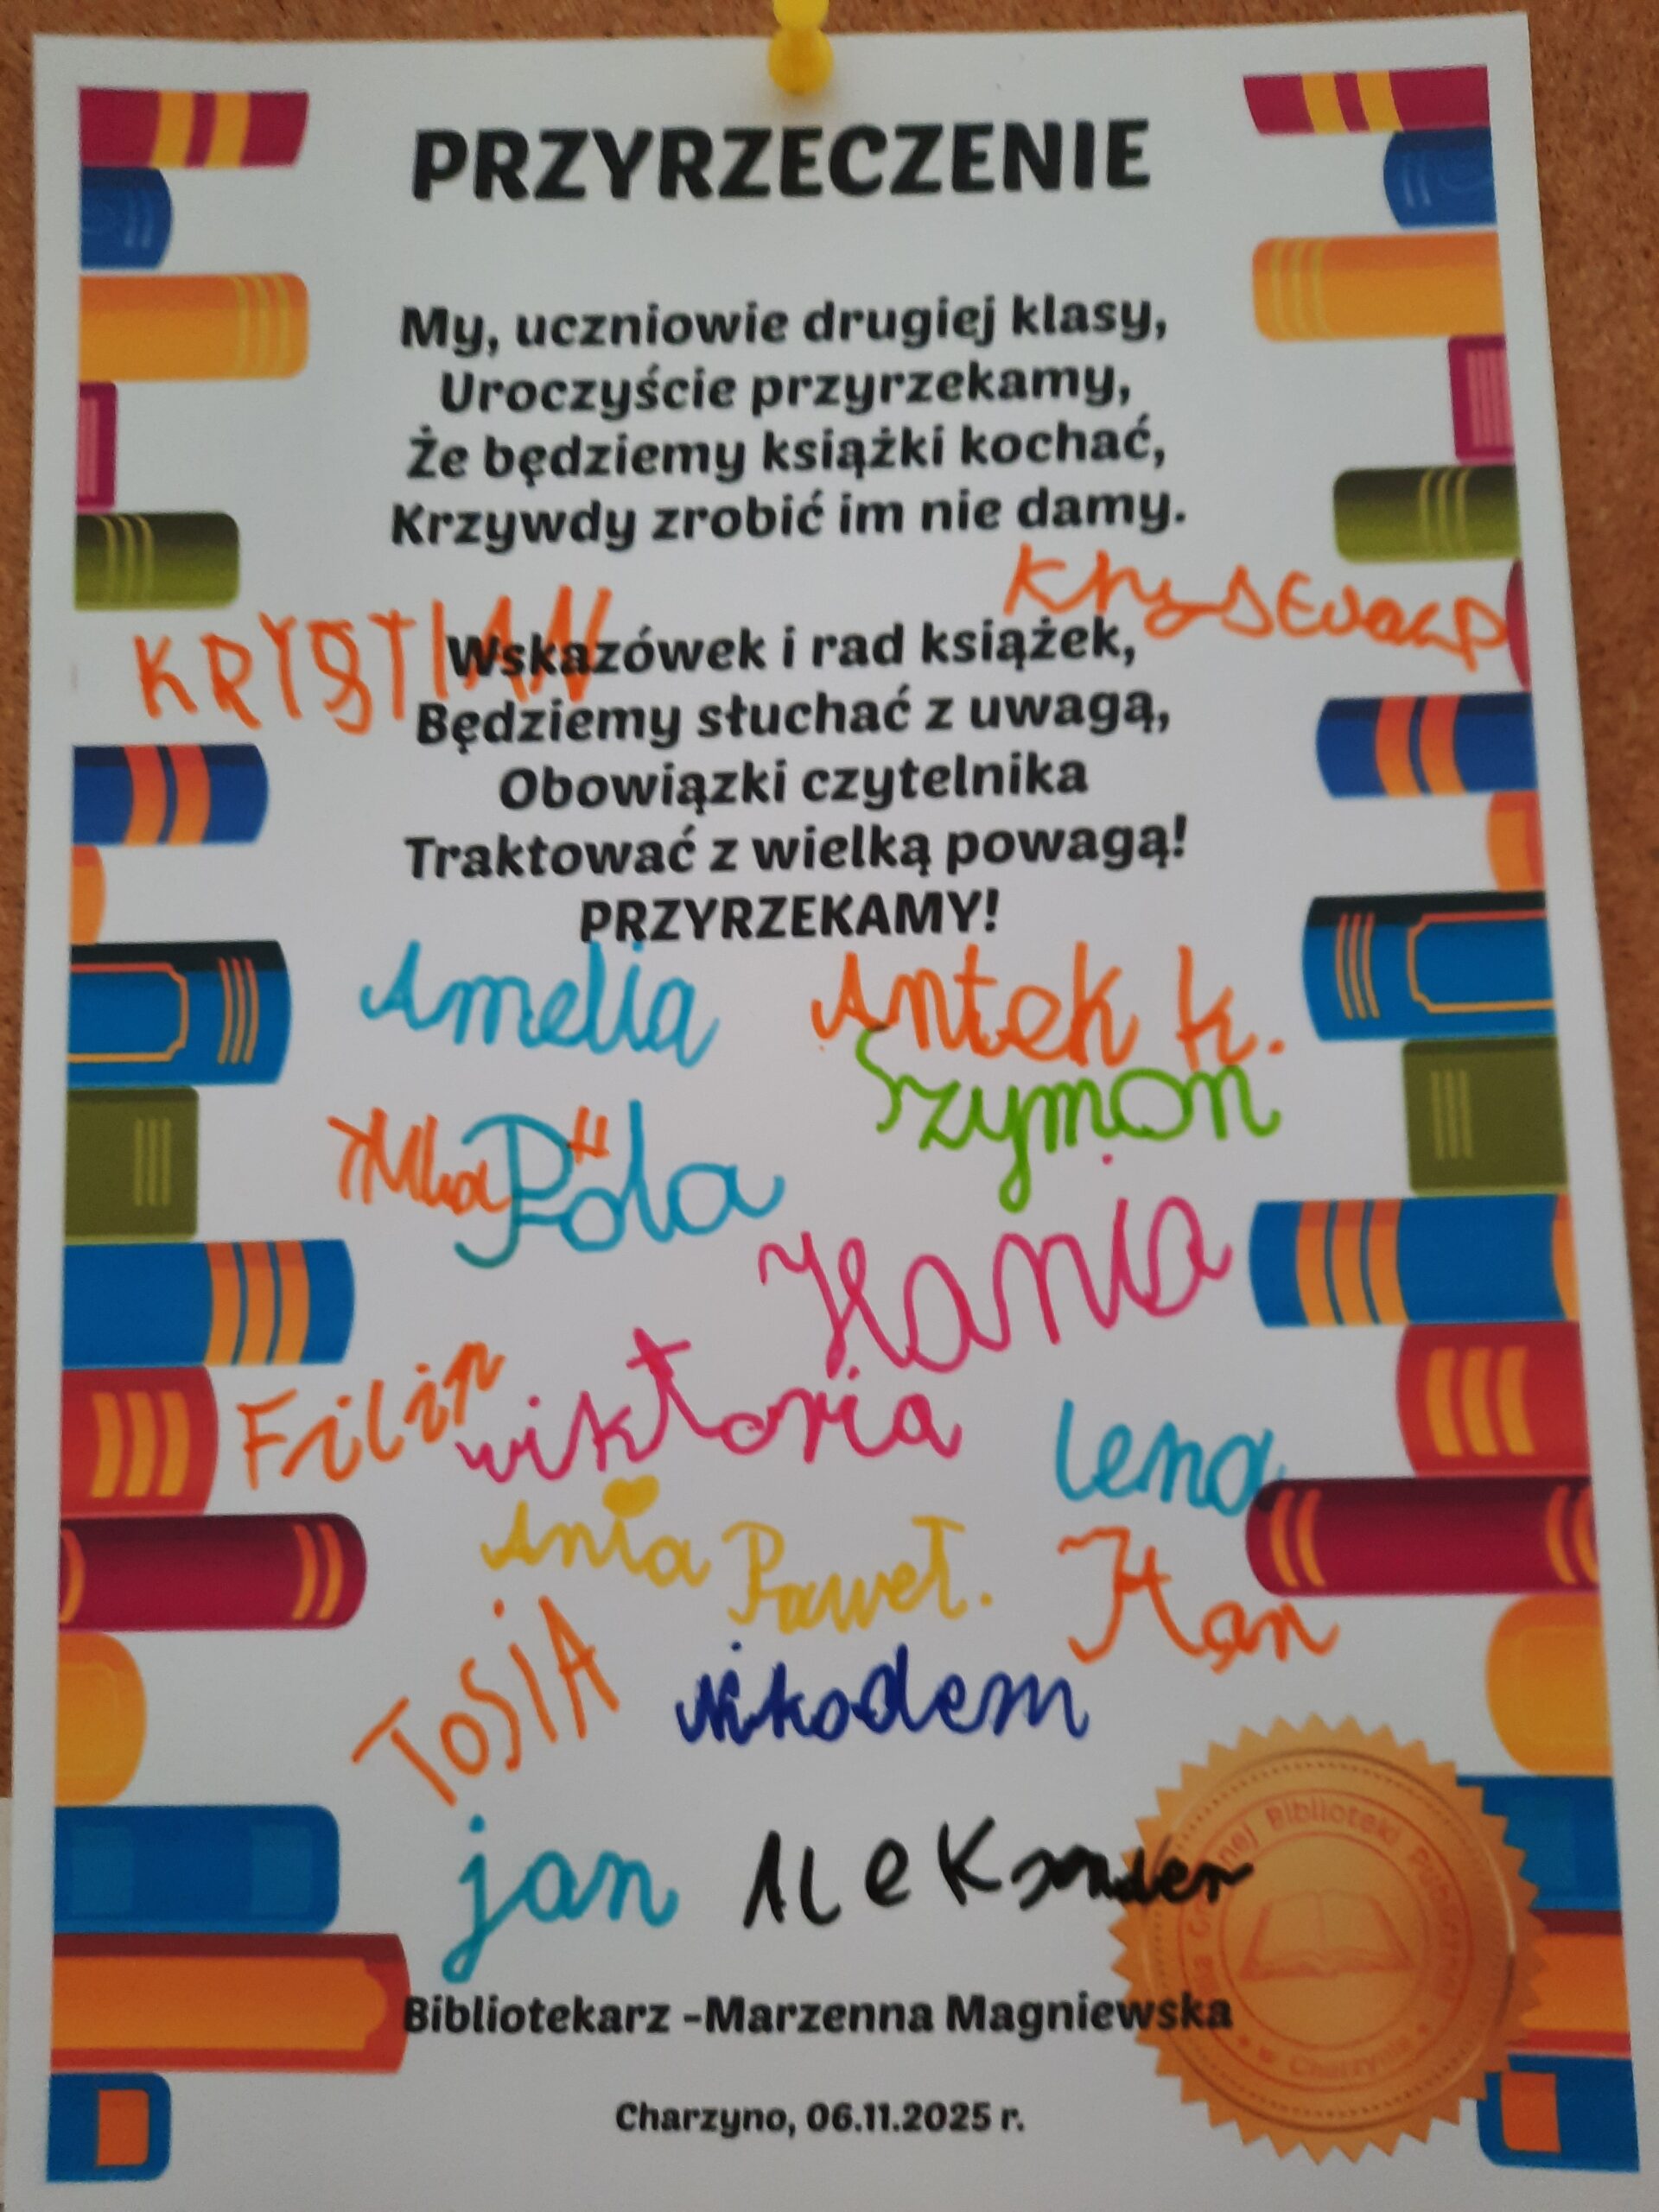 PRZYRZECZENIE
My, uczniowie drugiej klasy,
Uroczyście przyrzekamy,
Że będziemy książki kochać,
Krzywdy zrobić im nie damy.
KRYSTIAN
Wskazówek i rad książek,
Będziemy słuchać z uwagą,
Obowiązki czytelnika
Traktować z wielką powagą!
PRZYRZEKAMY!
Amelia Antek K.
Szymon
Pola H
Hania
Filip wiktoria lena
Ania Paweł.
TOSIA Nikodem
jan ALeKsander
Bibliotekarz -Marzenna Magniewska
w Charzynie
Charzyno, 06.11.2025 r.